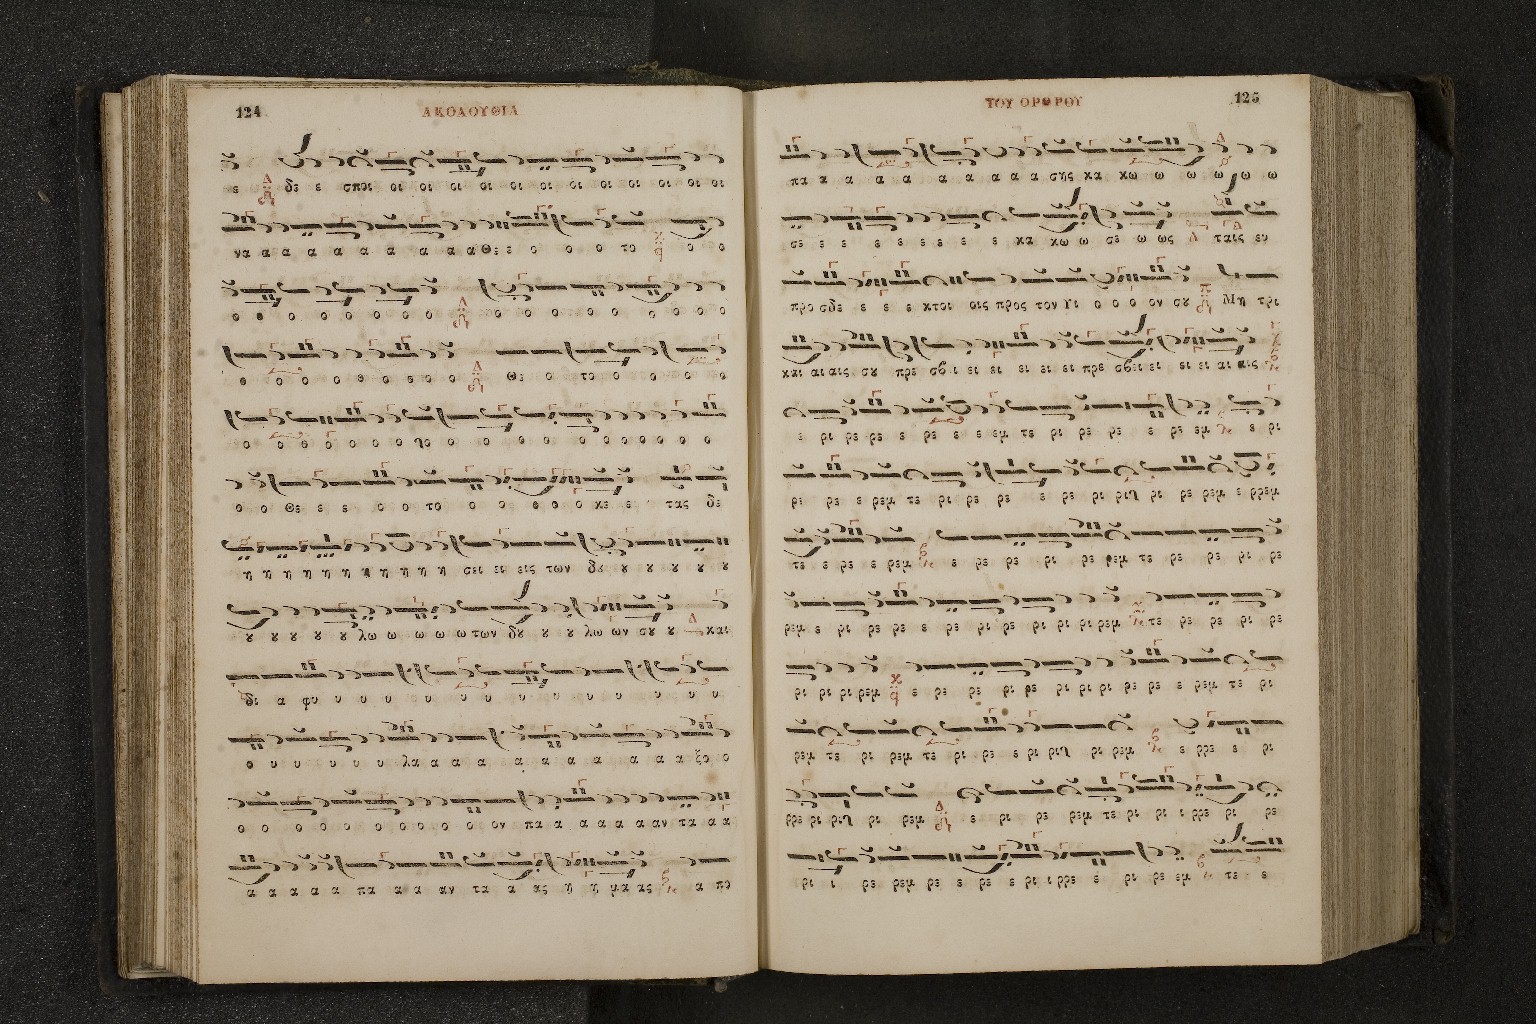 124
ΑΚΟΛΟΥΘΙΑ
ε δε ε σποι οι οι οι οι οι οι οι οι οι οι οι οι
να α α α α α α α α α Θε ε ο ο ο ο το ο ο
ο ο ο ο ο ο ο ο ο ο ο ο ο ο ο ο
ε ο ο ο ο θ ο ε ο ο Θε ο το ο ο ο ο
ο ο θ ο ο ο ο ο ο ο ο ο ο ο ο ο ο ο ο
ο ο Θε ε ε ο ο το ο ο ο ο ο χε ε τας δε
η η η η η η η η η η σει ει εις των δȣ ȣ ȣ ȣ ȣ ȣ
ȣ ȣ ȣ ȣ ȣ λω ω ω ω ω των δȣ ȣ ȣ λω ων σȣ ȣ και
δι α φυ υ υ υ υ υ υ υ υ υ υ υ υ υ
ο υ υ υ υ υ λα α α α α α α α α α α ξο ο
ο ο ο ο ο ο ο ο ο ο ον πα α α α α α αν τα α α
α α α α α πα α α αν τα α ας η η μα ας α πο
ΤΟΥ ΟΡΘΡΟΥ
125
πα α α α α α α α α σης κα κω ω ω ω ω ω
σε ε ε ε ε ε ε ε ε κα κω ω σε ω ως ταις ευ
προ σδε ε ε ε κτοι οις προς τον Υι ο ο ο ον σȣ Μη τρι
και αι αις σȣ πρε σβι ει ει ει ει ει πρε σβει ει ει ει αι αις
ε ρι ρε ρε ε ρε ε ε εμ τε ρι ρε ρε ε ρε εμ ε ρι
ρε ρε ε ρεμ τε ρι ρε ρε ε ρε ρι ρι ρι ρε ρεμ ε ρρεμ
τε ε ρε ε ρεμ ε ρε ρε ρι ρε ρεμ τε ρε ρε ρι ρε
ρεμ ε ρι ρε ρε ε ρε ρι ρε ρι ρι ρι ρεμ τε ρε ρε ρι ρε
ρι ρι ρι ρεμ ε ρε ρε ρι ρε ρι ρι ρι ρε ρε ε ρεμ τε ρι
ρεμ τε ρι ρεμ τε ρι ρε ε ρι ρι ρι ρεμ ε ρρε ε ρι
ρρε ρι ρι ρι ρεμ ε ρι ρεμ τε ρι ρι ι ρρε ρι ρε
ρι ι ρε ρεμ ρε ε ρε ε ρι ι ρρε ε ρι ρε εμ τε ε